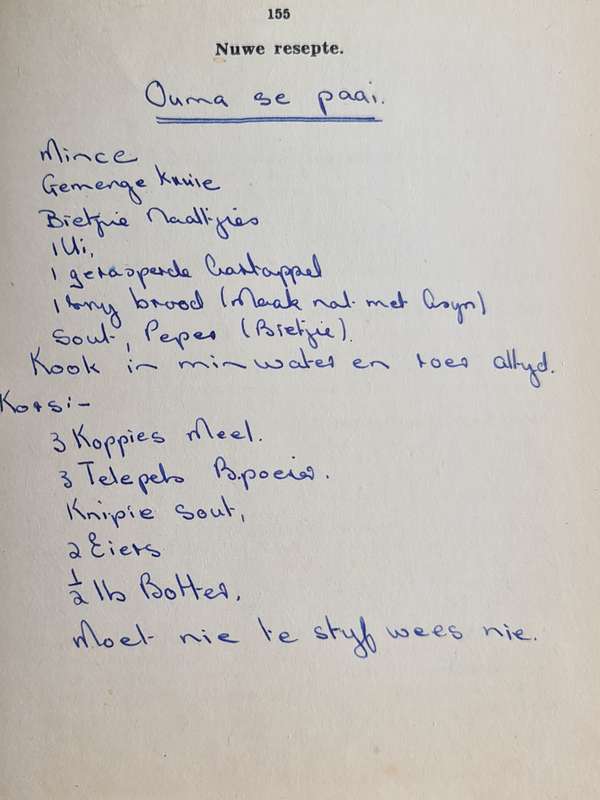 155
Nuwe resepte.
Ouma se paai.
Mince
Gemenge Kruie
Bietjie Naaltjies
1 Ui,
1 gerasperde Aartappel
1 sny brood (Maak nat met Asyn)
Sout, Peper (Bietjie).
Kook in min water en roer altyd.
Kors:-
3 Koppies Meel.
3 Telepels B.poeier.
Knipie Sout,
2 Eiers
½ lb Botter,
Moet nie te styf wees nie.